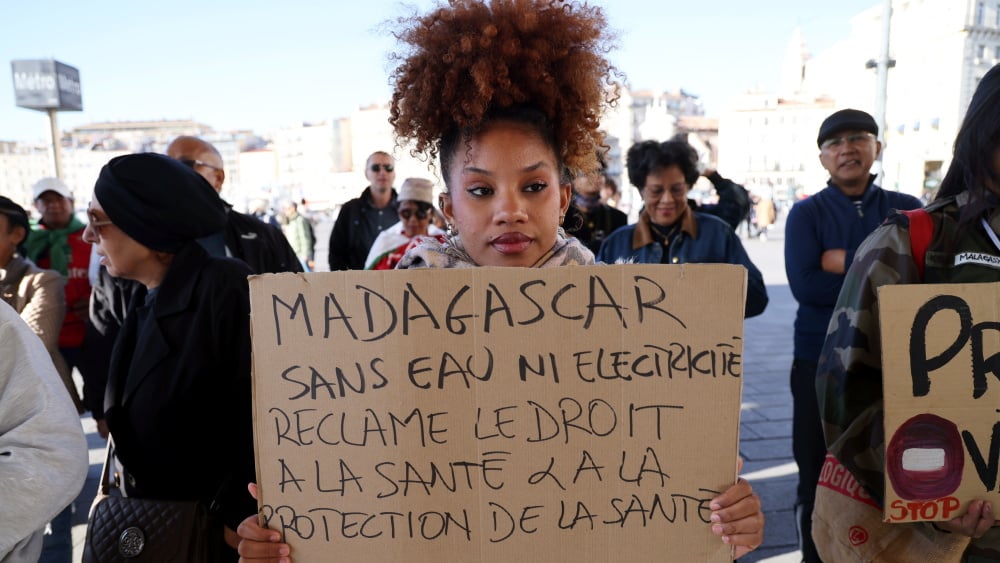 Métro
MADAGASCAR
SANS EAU NI ELECTRICITÉ
RECLAME LE DROIT
A LA SANTÉ & A LA
PROTECTION DE LA SANTÉ
STOP